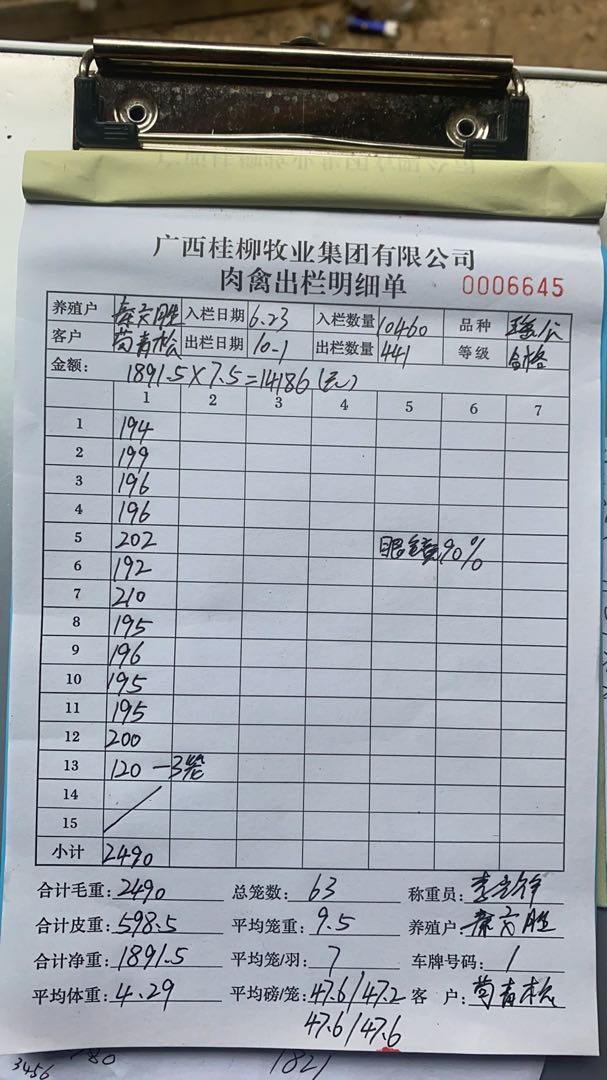 广西桂柳牧业集团有限公司
肉禽出栏明细单 0006645
养殖户 秦六胜 入栏日期 6.23 入栏数量 10460 品种
客户 苟青松 出栏日期 10.1 出栏数量 441 等级 合格
金额: 1891.5×7.5=14186(元)
1 2 3 4 5 6 7
1 194
2 199
3 196
4 196
5 202 90%
6 192
7 210
8 195
9 196
10 195
11 195
12 200
13 120 —3笼
14
15
小计 2490
合计毛重: 2490 总笼数: 63 称重员:
合计皮重: 598.5 平均笼重: 9.5 养殖户: 秦六胜
合计净重: 1891.5 平均笼/羽: 7 车牌号码: /
平均体重: 4.29 平均磅/笼: 47.6/47.2 客户: 苟青松
47.6/47.6
3456 780 1821